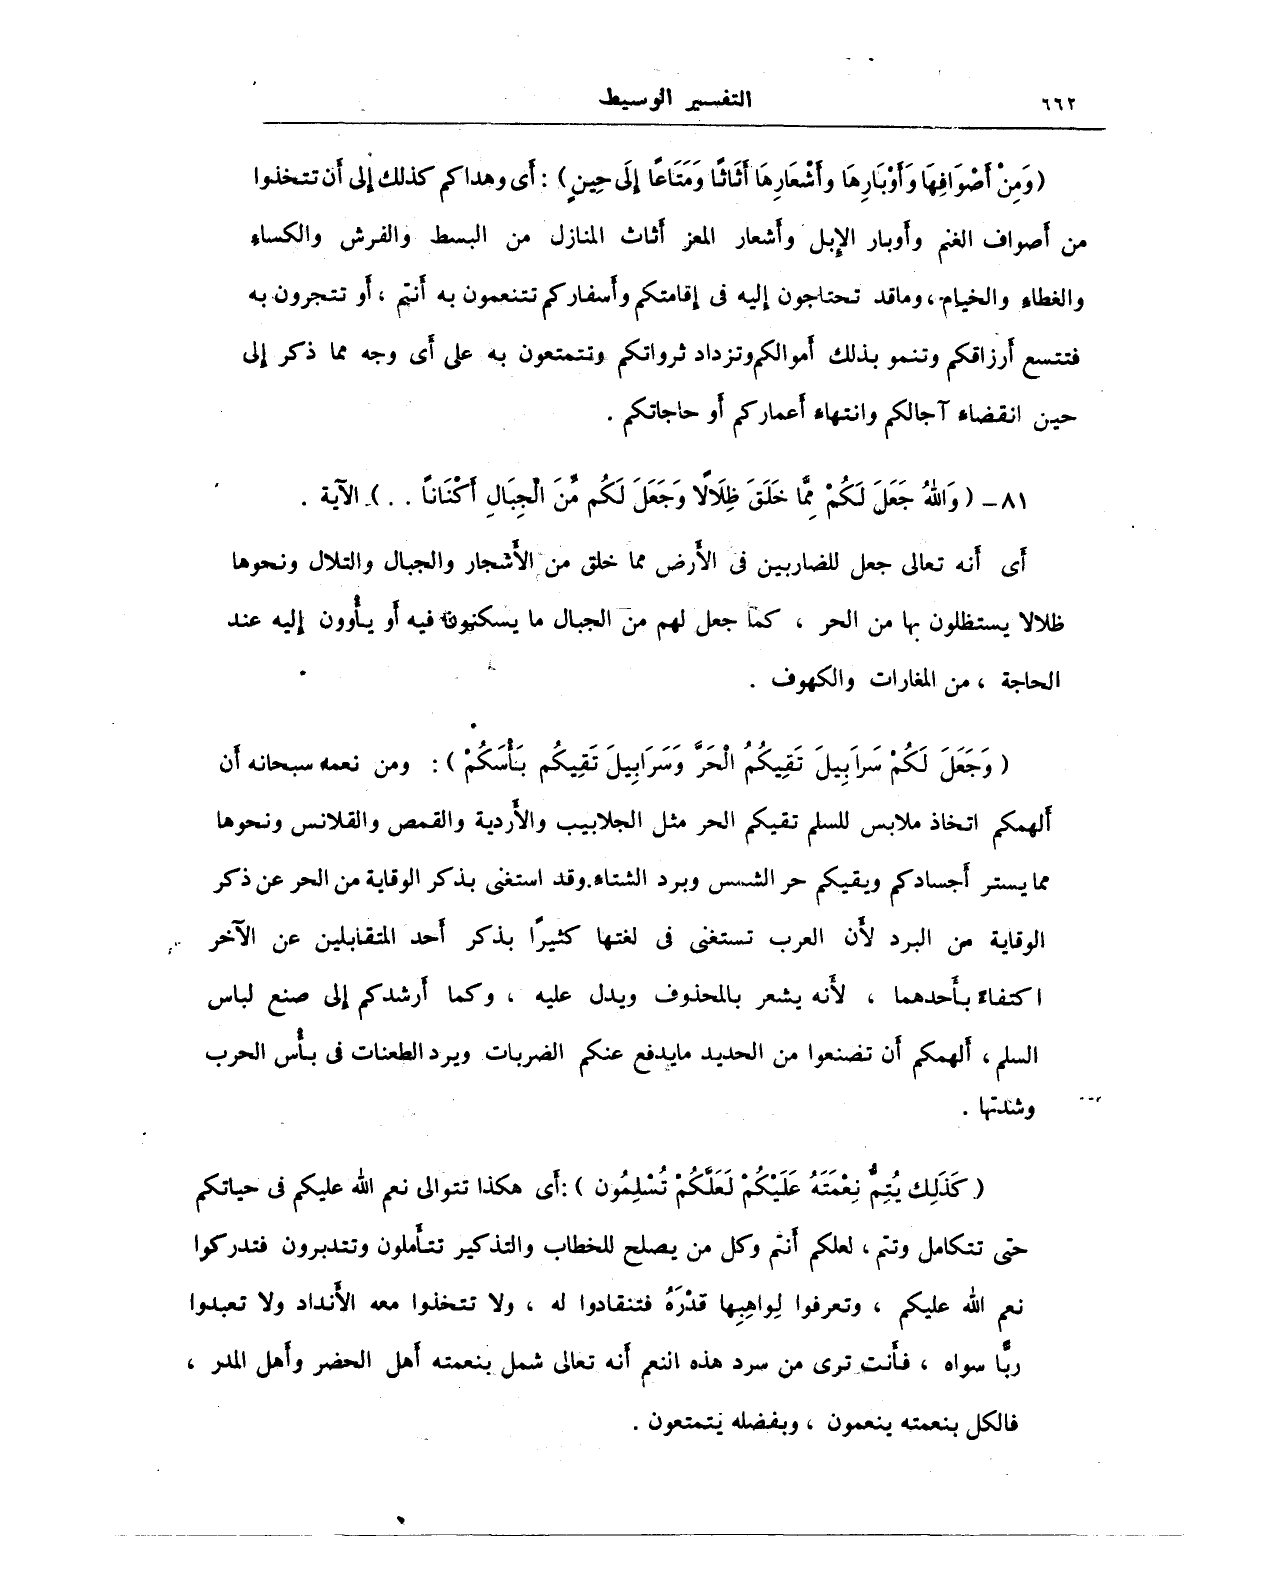 ٦٦٢ التفسير الوسيط
(وَمِنْ أَصْوَافِهَا وَأَوْبَارِهَا وأَشْعَارِهَا أَثَاثًا وَمَتَاعًا إِلَى حِينٍ) : أَى وهداكم كذلك إلى أن تتخذوا
من أَصواف الغنم وأَوبار الإِبل وأَشعار المعز أَثاث المنازل من البسط والفرش والكساء
والغطاء والخيام ، وماقد تحتاجون إليه فى إقامتكم وأَسفاركم تتنعمون به أَنتم ، أَو تتجرون به
فتتسع أَرزاقكم وتنمو بذلك أَموالكم وتزداد ثرواتكم وتتمتعون به على أَى وجه مما ذكر إلى
حين انقضاء آجالكم وانتهاء أَعماركم أَو حاجاتكم .
٨١ – ( وَاللهُ جَعَلَ لَكُمْ مِمَّا خَلَقَ ظِلَالًا وَجَعَلَ لَكُم مِّنَ الْجِبَالِ أَكْنَانًا . . ) الآية .
أَى أَنه تعالى جعل للضاربين فى الأَرض مما خلق من الأَشجار والجبال والتلال ونحوها
ظلالا يستظلون بها من الحر ، كما جعل لهم من الجبال ما يسكنون فيه أَو يأْوون إليه عند
الحاجة ، من المغارات والكهوف .
( وَجَعَلَ لَكُمْ سَرابِيلَ تَقِيكُمُ الْحَرَّ وَسَرَابِيلَ تَقِيكُم بَأْسَكُمْ ) : ومن نعمه سبحانه أَن
أَلهمكم اتخاذ ملابس للسلم تقيكم الحر مثل الجلابيب والأَردية والقمص والقلانس ونحوها
مما يستر أَجسادكم ويقيكم حر الشمس وبرد الشتاء . وقد استغنى بذكر الوقاية من الحر عن ذكر
الوقاية من البرد لأَن العرب تستغنى فى لغتها كثيرًا بذكر أَحد المتقابلين عن الآخر
اكتفاءً بأَحدهما ، لأَنه يشعر بالمحذوف ويدل عليه ، وكما أَرشدكم إلى صنع لباس
السلم ، أَلهمكم أَن تصنعوا من الحديد مايدفع عنكم الضربات ويرد الطعنات فى بأْس الحرب
وشدتها .
( كَذَلِكَ يُتِمُّ نِعْمَتَهُ عَلَيْكُمْ لَعَلَّكُمْ تُسْلِمُون ) : أَى هكذا تتوالى نعم الله عليكم فى حياتكم
حتى تتكامل وتتم ، لعلكم أَنتم وكل من يصلح للخطاب والتذكير تتأَملون وتتدبرون فتدركوا
نعم الله عليكم ، وتعرفوا لِواهِبِها قدْرَهُ فتنقادوا له ، ولا تتخذوا معه الأَنداد ولا تعبدوا
ربًّا سواه ، فأَنت ترى من سرد هذه النعم أَنه تعالى شمل بنعمته أَهل الحضر وأَهل المدر ،
فالكل بنعمته ينعمون ، وبفضله يتمتعون .